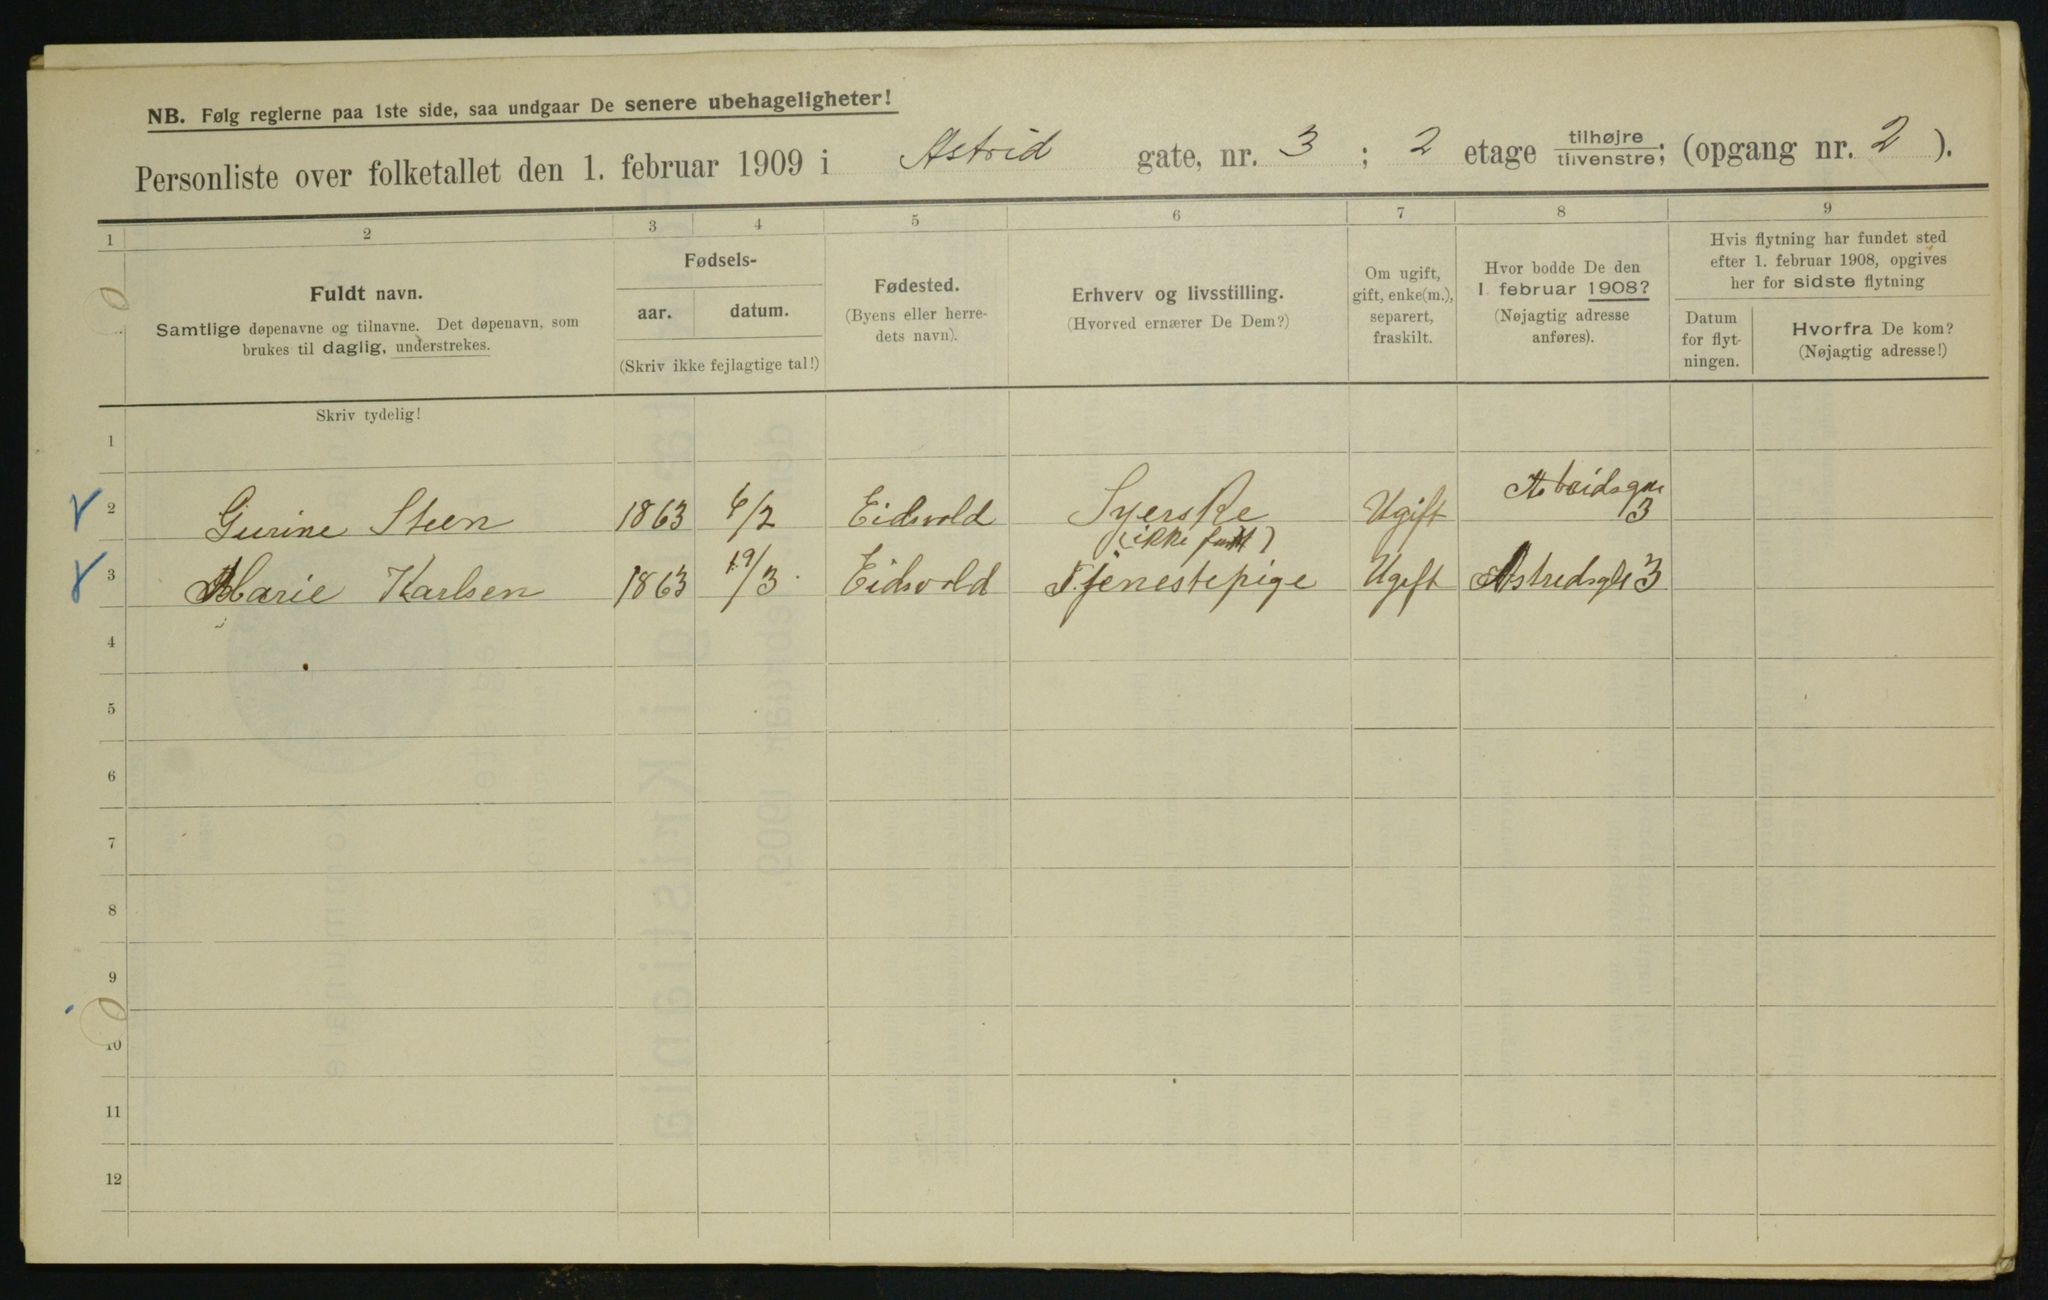 NB. Følg reglerne paa 1ste side, saa undgaar De senere ubehageligheter!
Personliste over folketallet den 1. februar 1909 i Astrid gate, nr. 3 ; 2 etage tilhøjre/tilvenstre; (opgang nr. 2 ).
1 2 3 4 5 6 7 8 9
Fuldt navn.
Samtlige døpenavne og tilnavne. Det døpenavn, som
brukes til daglig, understrekes.
Skriv tydelig!
Fødsels-
aar. datum.
(Skriv ikke fejlagtige tal!)
Fødested.
(Byens eller herre-
dets navn).
Erhverv og livsstilling.
(Hvorved ernærer De Dem?)
Om ugift,
gift, enke(m.),
separert,
fraskilt.
Hvor bodde De den
1. februar 1908?
(Nøjagtig adresse
anføres).
Hvis flytning har fundet sted
efter 1. februar 1908, opgives
her for sidste flytning
Datum
for flyt-
ningen.
Hvorfra De kom?
(Nøjagtig adresse!)
1
2 Gurine Steen 1863 6/2 Eidsvold Syerske Ugift 3
(ikke
3 Marie Karlsen 1863 19/3 Eidsvold Tjenestepige Ugift Astridsgt 3
4
5
6
7
8
9
10
11
12